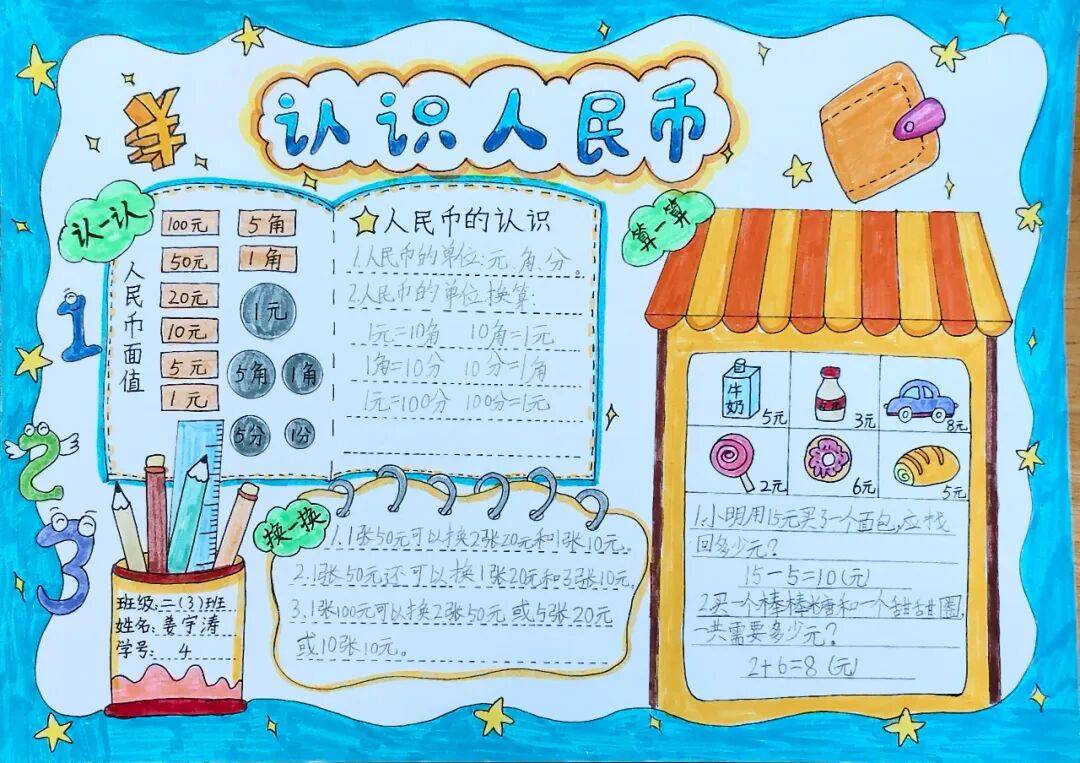 认识人民币
认一认
人民币面值
100元
50元
20元
10元
5元
1元
5角
1角
1元
5角
1角
5分
1分
★人民币的认识
1.人民币的单位:元、角、分。
2.人民币的单位换算:
1元=10角 10角=1元
1角=10分 10分=1角
1元=100分 100分=1元
换一换
1.1张50元可以换2张20元和1张10元。
2.1张50元还可以换1张20元和3张10元。
3.1张100元可以换2张50元或5张20元
或10张10元。
班级:二(3)班
姓名:姜宇涛
学号: 4
算一算
牛奶
5元
3元
8元
2元
6元
5元
1.小明用15元买了一个面包,应找
回多少元?
15-5=10(元)
2.买一个棒棒糖和一个甜甜圈,
一共需要多少元?
2+6=8(元)
1
2
3